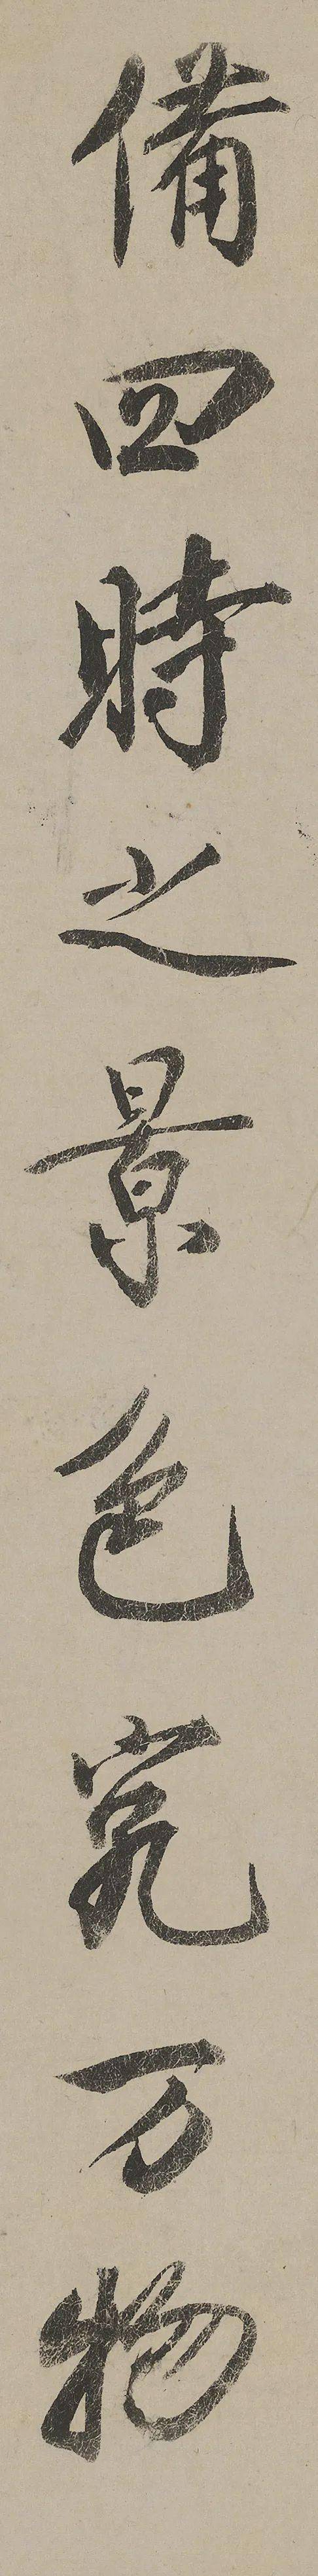 備四時之景色究万物